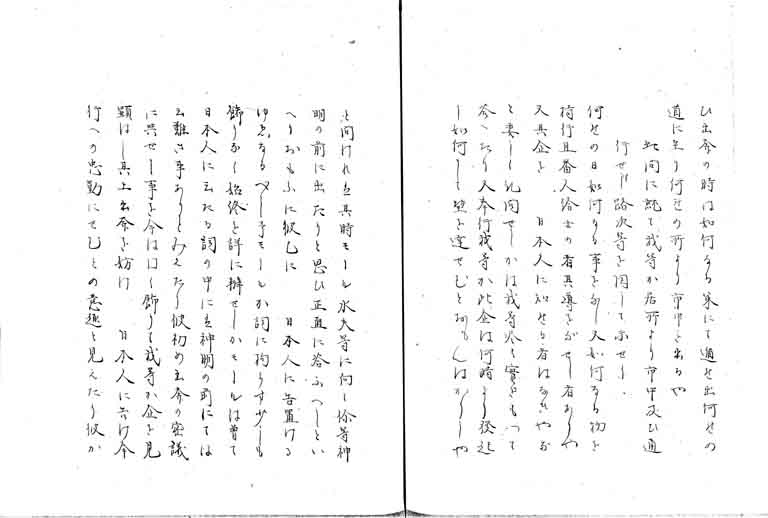 ひ出奔の時は如何なる策にて遁せ出何せの
道に至り何せの所より市中を出るや
此問に就て我等か居所より市中及ひ通
行せし路次等を図して示せり
何せの日如何なる事を為し又如何なる物を
持行且番人給士の者其導をなせし者ありや
又其企を 日本人に知せる者はなきやな
と委しく礼問せしかは我等尽く実をもつて
答へたり又奉行我等か此企は何時より発起
し如何して望を達せむとおもんはかりしや
と問けれは其時モール水夫等に向し徐等神
明の前に出たりと思ひ正直に答ふへしとい
へりおもふに彼已に 日本人に告置ける
ゆゑなるへし予モールか詞に拘らす少しも
飾りなく始終を詳に辯せしかモールは曽て
日本人に云たる詞の中には神明の前にては
云難き事ありとみえたり彼初め出奔の密議
に與せし事を今は口く飾りて我等か企を見
顕はし其上出奔を妨け 日本人に告け今
行への忠勤にせむとの意趣と見えたり彼か